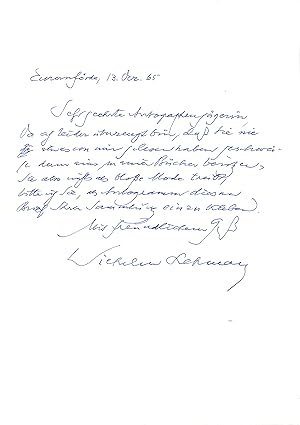 Eckernförde, 13. Dez. 65
Sehr geehrte Autographenjägerin,
Da ich leider überzeugt bin, daß Sie nie
etwas von mir gelesen haben, geschwei-
ge denn eins meiner Bücher besitzen,
Sie also nichts als bloße Mode treibt,
bitte ich Sie, als Autogramm diesen
Brief Ihrer Sammlung einzuverleiben.
Mit freundlichem Gruß
Wilhelm Lehmann